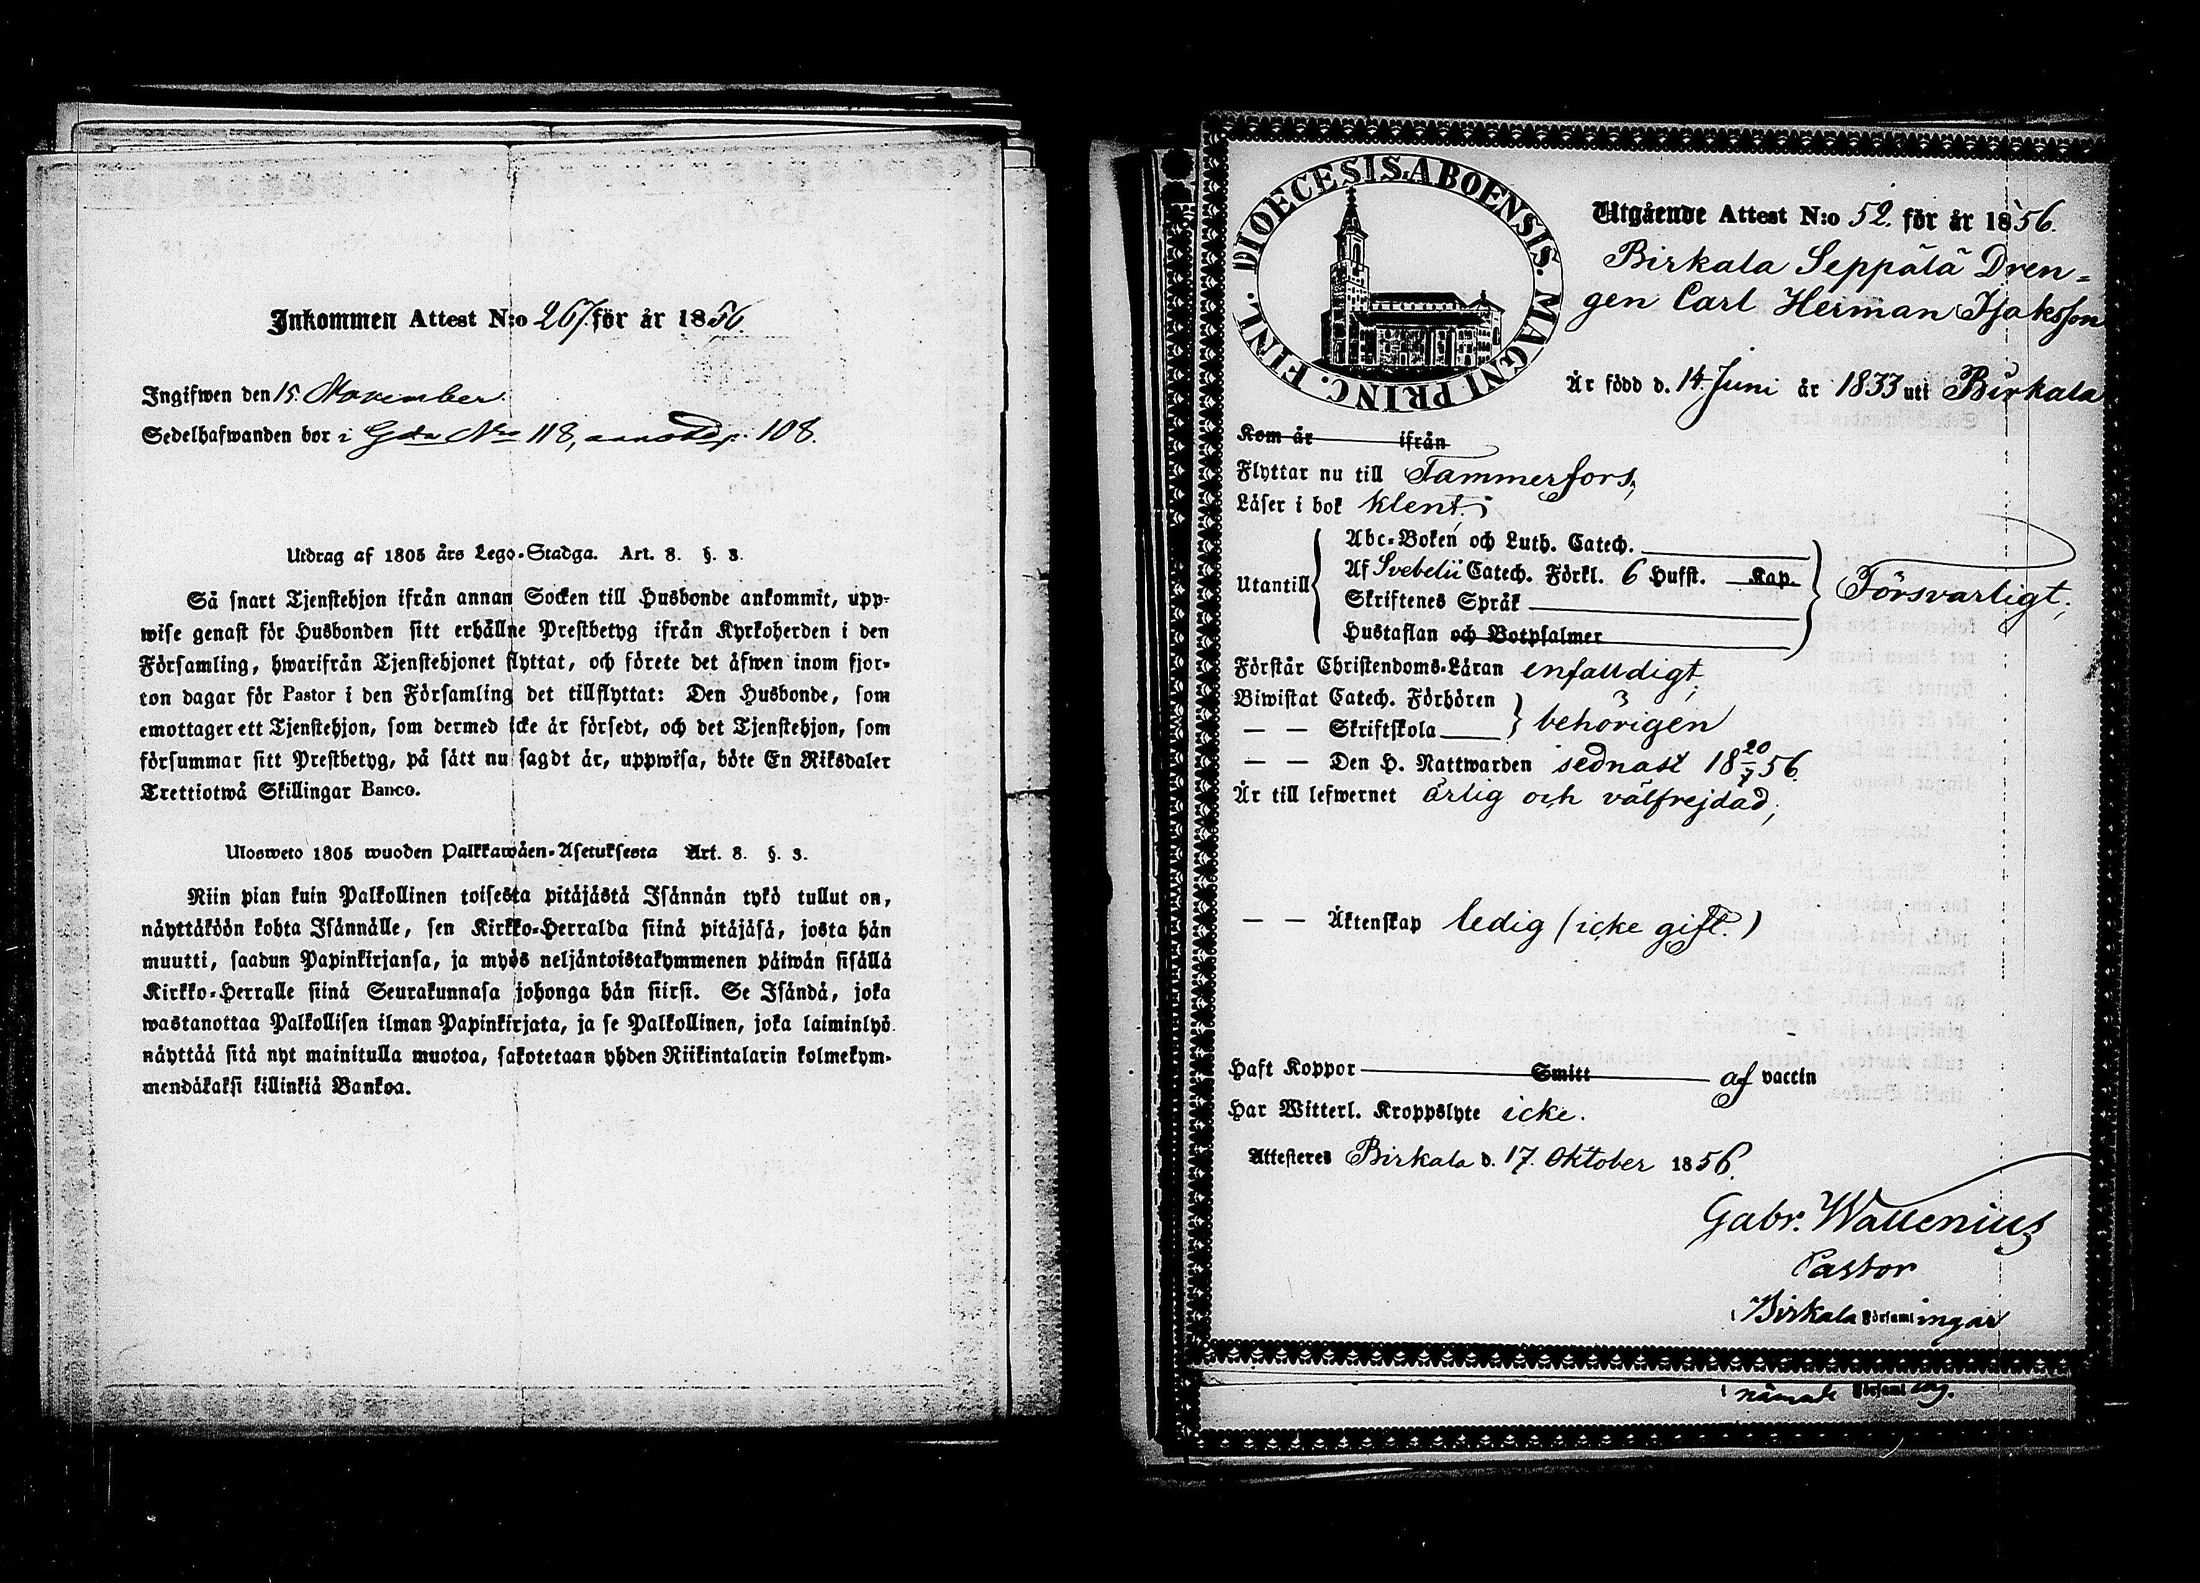 Inkommen Attest N:o 267. för år 1856.
Ingifwen den 15. November.
Sedelhafwanden bor i Gda No 118, 108.
Utdrag af 1805 års Lego-Stadga. Art. 8. §. 3.
Så snart Tjenstehjon ifrån annan Socken till Husbonde ankommit, upp-
wise genast för Husbonden sitt erhållne Prestbetyg ifrån Kyrkoherden i den
Församling, hwarifrån Tjenstehjonet flyttat, och förete det äfwen inom fjor-
ton dagar för Pastor i den Församling det tillflyttat: Den Husbonde, som
emottager ett Tjenstehjon, som dermed icke är försedt, och det Tjenstehjon, som
försummar sitt Prestbetyg, på sätt nu sagdt är, uppwisa, böte En Riksdaler
Trettiotwå Skillingar Banco.
Ulosweto 1805 wuoden Palkkawäen-Asetuksesta Art. 8. §. 3.
Niin pian kuin Palkollinen toisesta pitäjästä Isännän tykö tullut on,
näyttäköön kohta Isännälle, sen Kirkko-Herralda siinä pitäjäsä, josta hän
muutti, saadun Papinkirjansa, ja myös neljäntoistakymmenen päiwän sisällä
Kirkko-Herralle siinä Seurakunnasa johonga hän siirsi. Se Isändä, joka
wastanottaa Palkollisen ilman Papinkirjata, ja se Palkollinen, joka laiminlyö
näyttää sitä nyt mainitulla muotoa, sakotetaan yhden Riikintalarin kolmekym-
mendäkaksi killinkiä Bankoa.
DIOECESIS. ABOENSIS. MAGNI PRINC. FINL.
Utgående Attest N:o 52. för år 1856.
Birkala Seppälä Dren-
gen Carl Herman Isaksson
Är född d. 14. Juni år 1833 uti Birkala
Kom år ifrån
Flyttar nu till Tammerfors,
Läser i bok klent;
Utantill
Abc-Boken och Luth. Catech.
Af Svebelii Catech. Förkl. 6 Hufst. Kap.
Skriftenes Språk
Hustaflan och Botpsalmer
Försvarligt;
Förstår Christendoms-Läran enfalldigt,
Biwistat Catech. Förhören
— — Skriftskola
behörigen
— — Den H. Nattwarden sednast 18 20/7 56.
Är till lefwernet ärlig och välfrejdad,
— — Äktenskap ledig (icke gift.)
Haft Koppor Smitt af vaccin
Har Witterl. Kroppslyte icke.
Attesteres Birkala d. 17. Oktober 1856.
Gabr. Wallenius
Pastor
i Birkala Församlingar
i nämnde Församling.